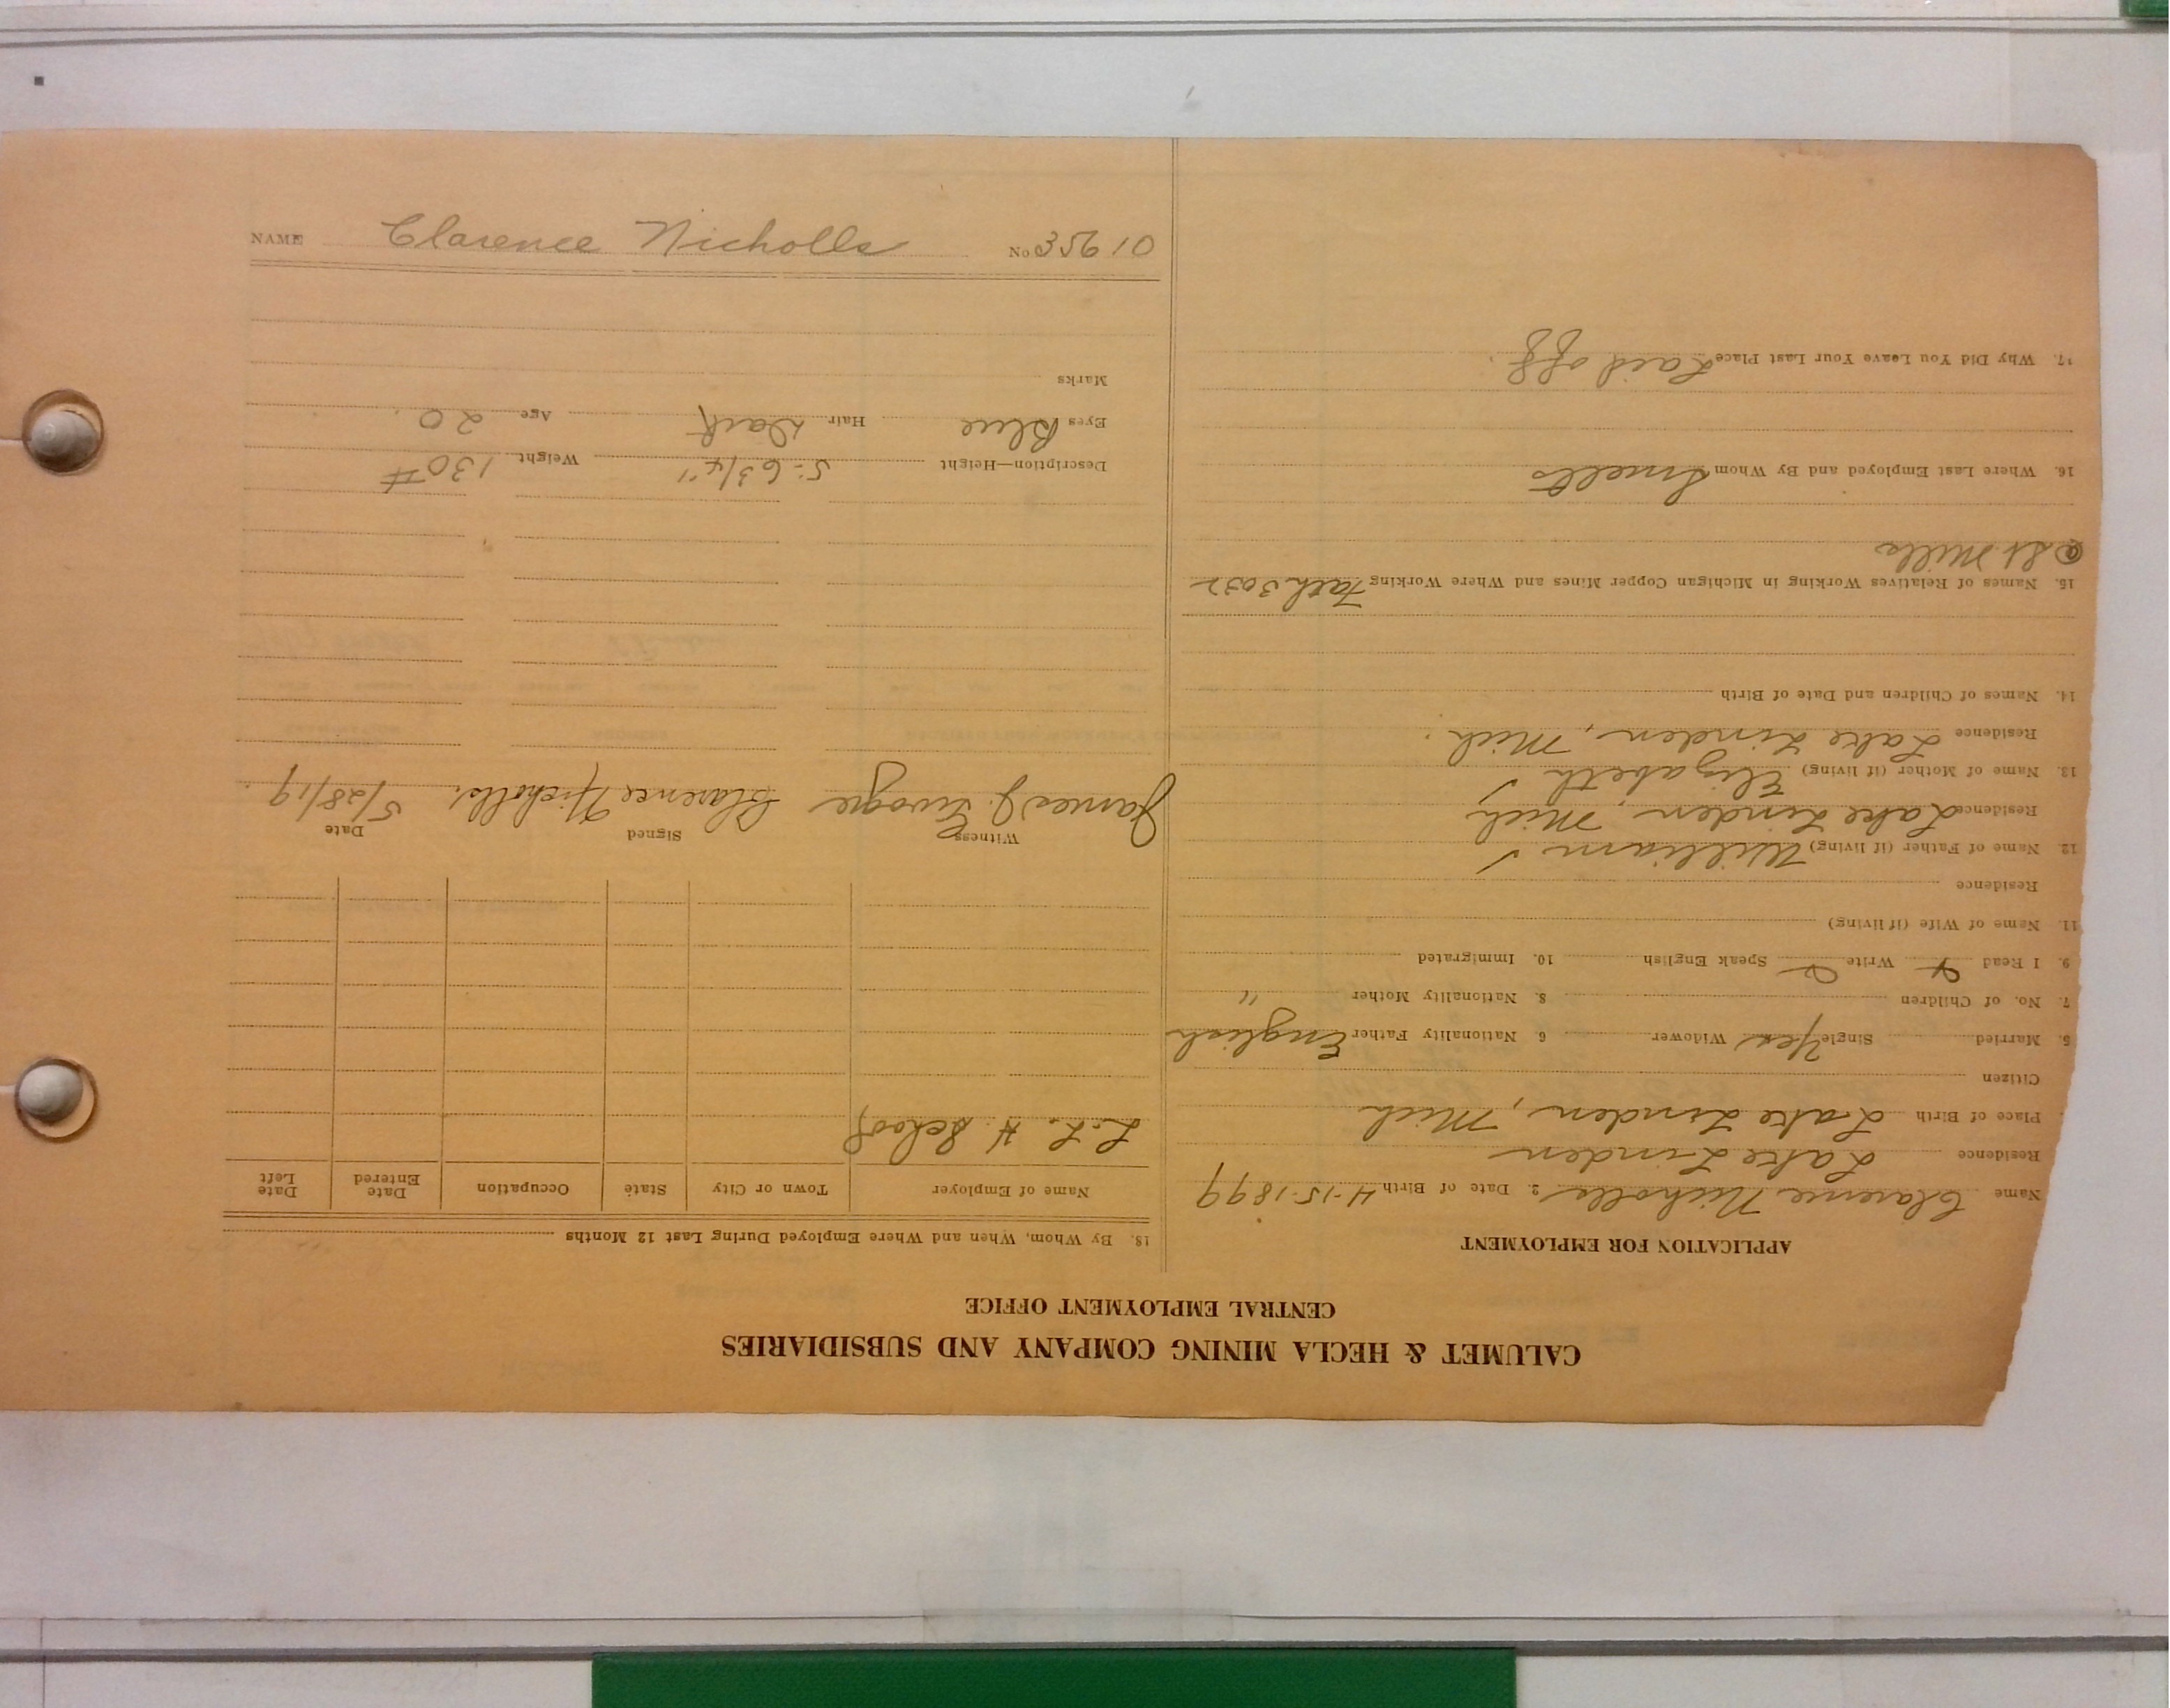 CALUMET & HECLA MINING COMPANY AND SUBSIDIARIES
CENTRAL EMPLOYMENT OFFICE
APPLICATION FOR EMPLOYMENT
Name Clarence Nicholls 2. Date of Birth 4-15-1899
Residence Lake Linden
Place of Birth Lake Linden, Mich
Citizen
5. Married Single Yes Widower 6. Nationality Father English
7. No. of Children 8. Nationality Mother "
9. I Read Write Speak English 10. Immigrated
11. Name of Wife (if living)
Residence
12. Name of Father (if living) William ✓
Residence Lake Linden, Mich
13. Name of Mother (if living) Elizabeth ✓
Residence Lake Linden, Mich.
14. Names of Children and Date of Birth
15. Names of Relatives Working in Michigan Copper Mines and Where Working Fath 3032
@ St Mills
16. Where Last Employed and By Whom Smelts
17. Why Did You Leave Your Last Place Laid off.
18. By Whom, When and Where Employed During Last 12 Months
Name of Employer Town or City State Occupation Date Entered Date Left
L. L. H. School
Witness Signed Date
James J. Clarence Nicholls. 5/28/19
Description—Height 5-6 3/4" Weight 130 #
Eyes Blue Hair Dark Age 20.
Marks
NAME Clarence Nicholls No 35610